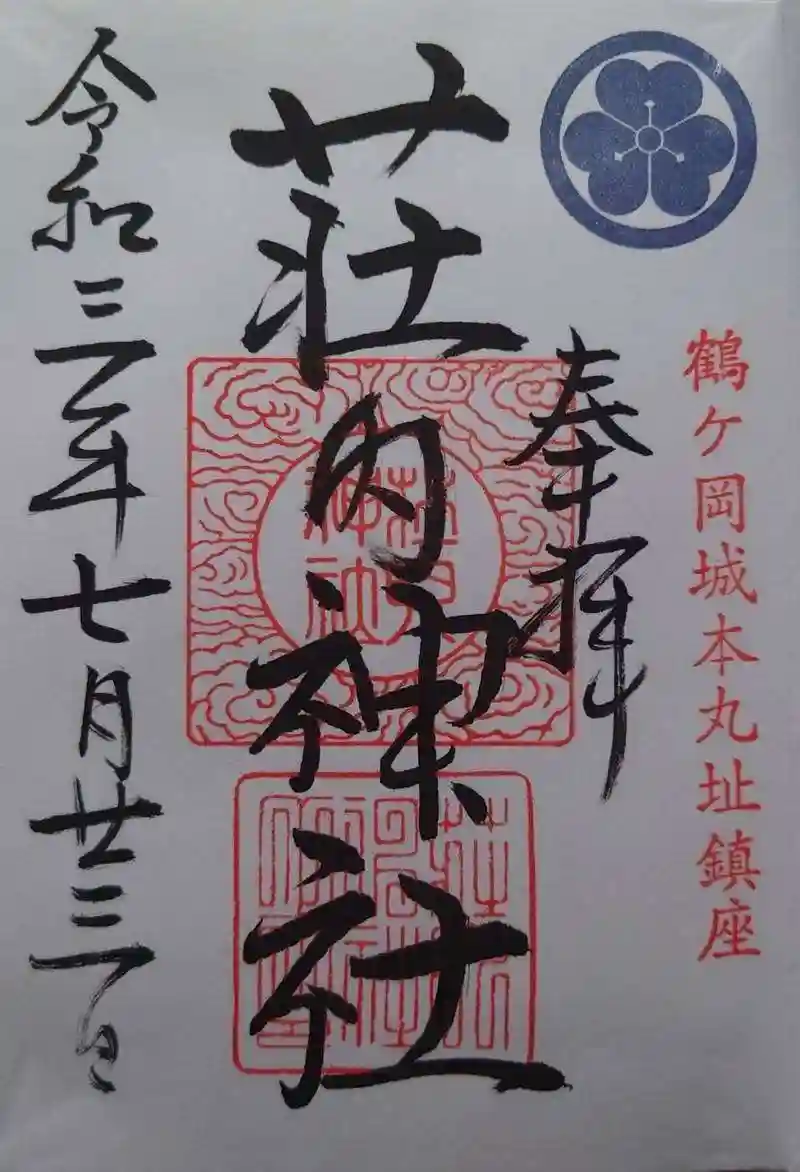 鶴ケ岡城本丸址鎮座
奉拝
荘内神社
荘内神社
令和三年七月廿三日